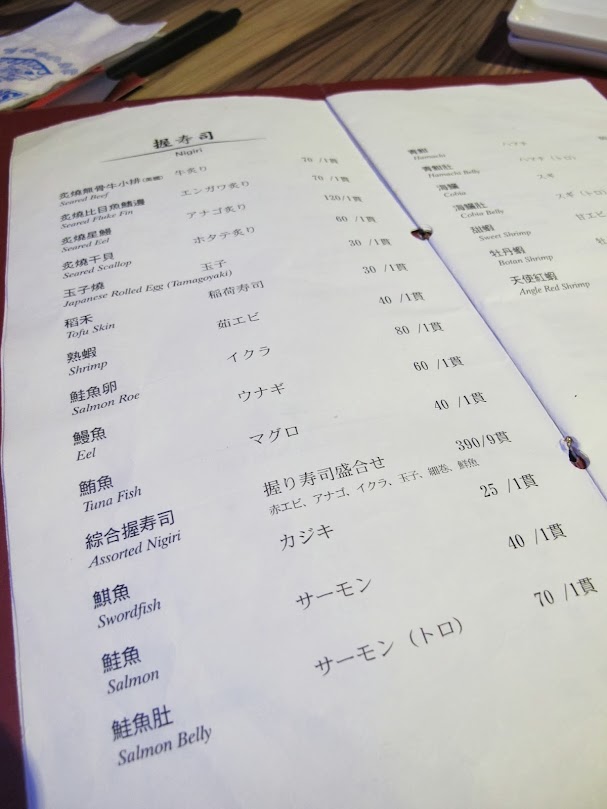 握寿司
Nigiri
炙燒無骨牛小排 牛炙り 70 /1貫
Seared Beef
炙燒比目魚鰭邊 エンガワ炙り 70 /1貫
Seared Fluke Fin
炙燒星鰻 アナゴ炙り 120/1貫
Seared Eel
炙燒干貝 ホタテ炙り 60 /1貫
Seared Scallop
玉子燒 玉子 30 /1貫
Japanese Rolled Egg (Tamagoyaki)
稻禾 稲荷寿司 30 /1貫
Tofu Skin
熟蝦 茹エビ 40 /1貫
Shrimp
鮭魚卵 イクラ 80 /1貫
Salmon Roe
鰻魚 ウナギ 60 /1貫
Eel
鮪魚 マグロ 40 /1貫
Tuna Fish
綜合握寿司 握り寿司盛合せ 390/9貫
Assorted Nigiri 赤エビ、アナゴ、イクラ、玉子、細巻、鮭魚
鯕魚 カジキ 25 /1貫
Swordfish
鮭魚 サーモン 40 /1貫
Salmon
鮭魚肚 サーモン（トロ） 70 /1貫
Salmon Belly
青魽 ハマチ
Hamachi
青魽肚 ハマチ（トロ）
Hamachi Belly
海鱺 スギ
Cobia
海鱺肚 スギ（トロ
Cobia Belly
甜蝦 甘エビ
Sweet Shrimp
牡丹蝦 牡
Botan Shrimp
天使紅蝦
Angle Red Shrimp